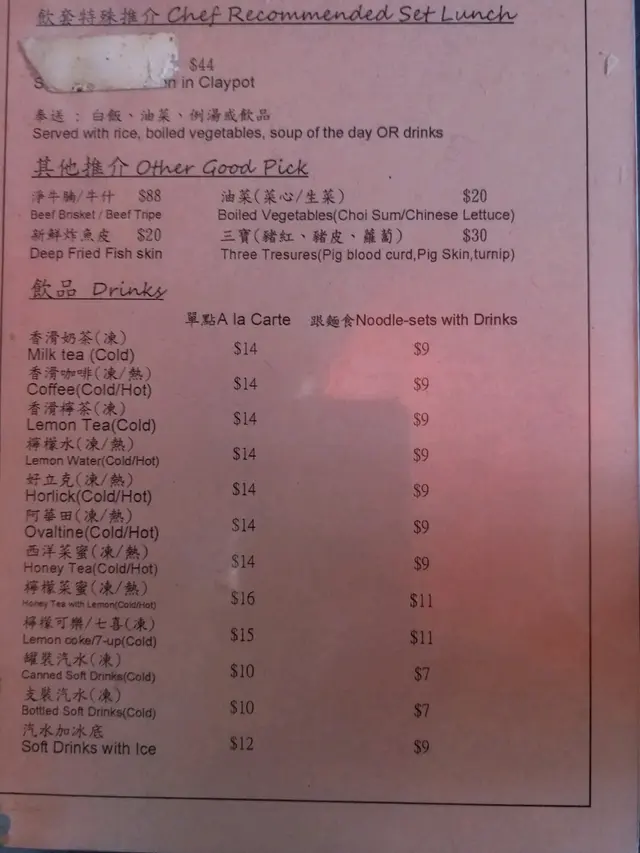 飲套特殊推介 Chef Recommended Set Lunch
$44
in Claypot
奉送 : 白飯、油菜、例湯或飲品
Served with rice, boiled vegetables, soup of the day OR drinks
其他推介 Other Good Pick
淨牛腩/牛什 $88 油菜(菜心/生菜) $20
Beef Brisket / Beef Tripe Boiled Vegetables(Choi Sum/Chinese Lettuce)
新鮮炸魚皮 $20 三寶(豬紅、豬皮、蘿蔔) $30
Deep Fried Fish skin Three Tresures(Pig blood curd,Pig Skin,turnip)
飲品 Drinks
單點A la Carte 跟麵食Noodle-sets with Drinks
香滑奶茶(凍)
Milk tea (Cold) $14 $9
香滑咖啡(凍/熱)
Coffee(Cold/Hot) $14 $9
香滑檸茶(凍)
Lemon Tea(Cold) $14 $9
檸檬水(凍/熱)
Lemon Water(Cold/Hot) $14 $9
好立克(凍/熱)
Horlick(Cold/Hot) $14 $9
阿華田(凍/熱)
Ovaltine(Cold/Hot) $14 $9
西洋菜蜜(凍/熱)
Honey Tea(Cold/Hot) $14 $9
檸檬菜蜜(凍/熱)
Honey Tea with Lemon(Cold/Hot) $16 $11
檸檬可樂/七喜(凍)
Lemon coke/7-up(Cold) $15 $11
罐裝汽水(凍)
Canned Soft Drinks(Cold) $10 $7
支裝汽水(凍)
Bottled Soft Drinks(Cold) $10 $7
汽水加冰底
Soft Drinks with Ice $12 $9